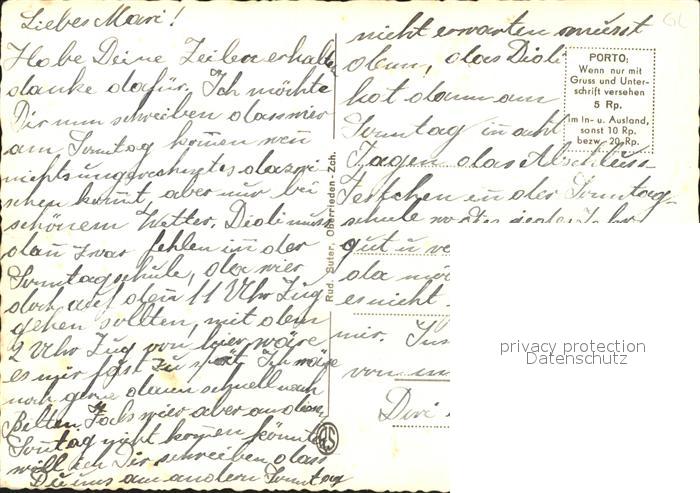 Liebes Mari!
Habe Deine Zeilen erhalten
danke dafür. Ich möchte
Dir nun schreiben dass wir
am Sonntag komen wen
nichts ungerechnetes dazwi
schen komt, aber nur bei
schönem Wetter. Didi muss
dan zwar fehlen in der
Sonntagschule, da wir
doch auf dem 11 Uhr Zug
gehen sollten, mit dem
2 Uhr Zug von hier wäre
es mir fast zu spät. Ich wäre
noch gerne dann schnell nach
Belten. Fals wir aber an dem
Sontag nicht komen könnten
will ich Dir schreiben dass
Du uns am andern Sonntag
nicht erwarten müsst
den, das Didi
hat dann am
Sonntag in acht
Tagen das Abschluss
Festchen in der Sonntag-
schule
gut u
da
es nicht
mir.
von
Rud. Suter, Oberrieden-Zch.
PORTO:
Wenn nur mit
Gruss und Unter-
schrift versehen
5 Rp.
im In- u. Ausland,
sonst 10 Rp.
bezw. 20 Rp.
RS
GL
privacy protection
Datenschutz